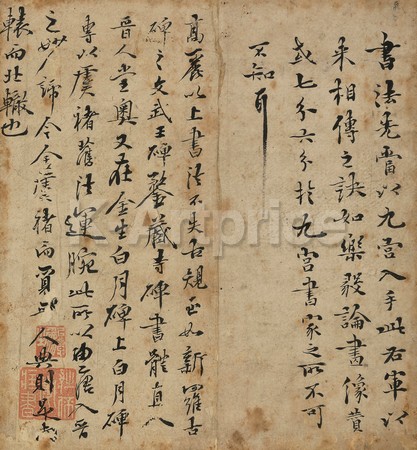 書法先當以九宮入手此右軍以
來相傳之訣如樂毅論畫像贊
或七分六分於九宮書家之所不可
不知耳
高麗以上書法不失古規正如新羅古
碑之文武王碑鍪藏寺碑書體直以
晉人堂奧又在金生白月碑上白月碑
專以虞褚舊法運腕此所以由唐入晉
之妙 今全 虞褚而 
轅而北轍也
K-Artprice